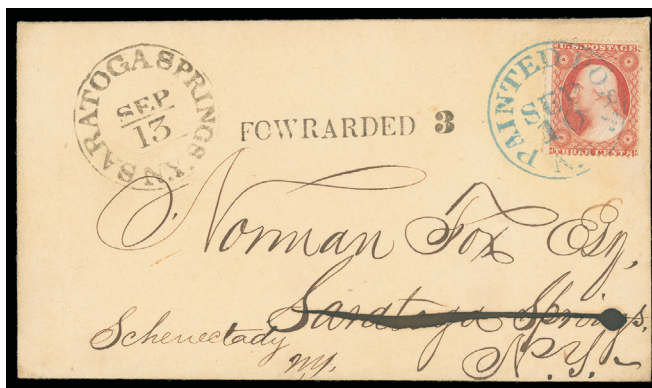 SARATOGA SPRINGS NY
SEP
13
FOWRARDED 3
PAINTED POST N.Y.
SEP
10
U.S. POSTAGE
Norman Fox Esq.
Saratoga Springs,
N.Y.
Schenectady
NY.